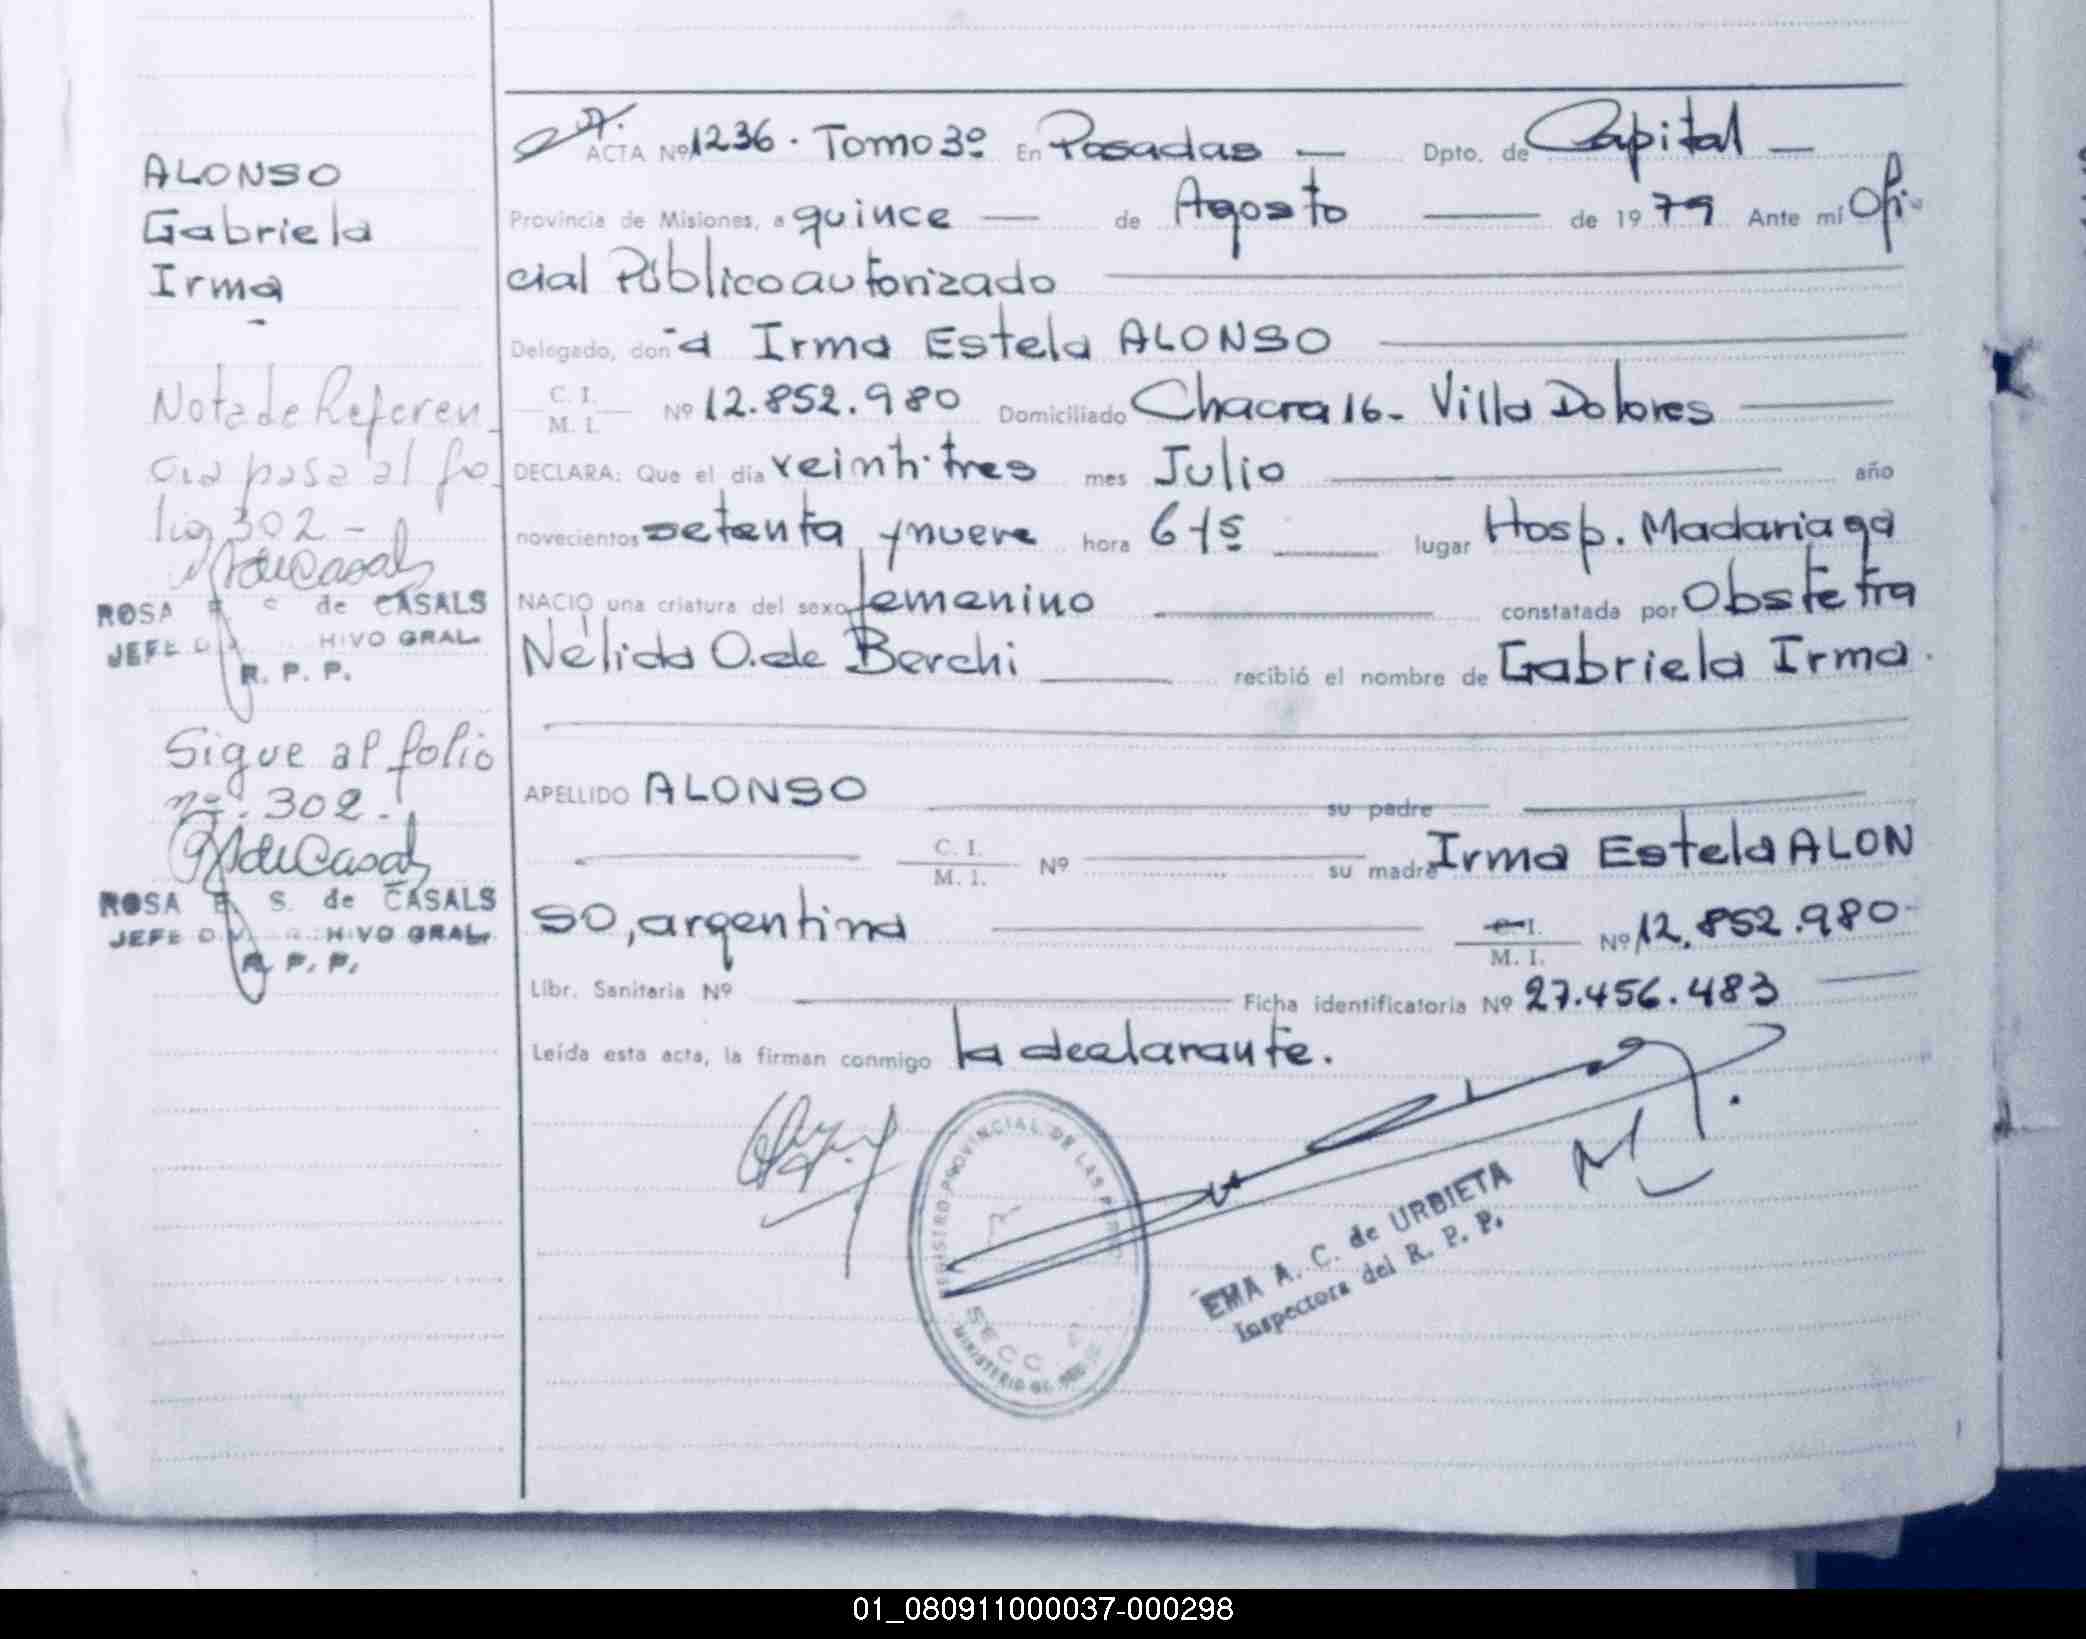 ALONSO
Gabriela
Irma
Nota de Referen
cia pasa al fo
lio 302 -
ROSA E de CASALS
JEFE D HIVO GRAL.
R. P. P.
Sigue al folio
nº. 302.-
ROSA E. S. de CASALS
JEFE DIV HIVO GRAL.
R. P. P.
ACTA Nº 1236. Tomo 3º En Posadas — Dpto. de Capital —
Provincia de Misiones, a quince — de Agosto — de 1979 Ante mí Ofi-
cial Público autorizado
Delegado, don a Irma Estela ALONSO
C. I.
M. I. Nº 12.852.980 Domiciliado Chacra 16- Villa Dolores
DECLARA: Que el día veinti-tres mes Julio año
novecientos setenta y nueve hora 6 15 lugar Hosp. Madariaga
NACIO una criatura del sexo femenino constatada por Obstetra
Nélida O. de Berchi recibió el nombre de Gabriela Irma.
APELLIDO ALONSO su padre
C. I.
M. I. Nº su madre Irma Estela ALON
SO, argentina C. I.
M. I. Nº 12.852.980-
Libr. Sanitaria Nº Ficha identificatoria Nº 27.456.483
Leída esta acta, la firman conmigo la declarante.
REGISTRO PROVINCIAL DE LAS PERS
SECC
MINISTERIO DE
EMA A. C. de URBIETA
Inspectora del R. P. P.
01_080911000037-000298